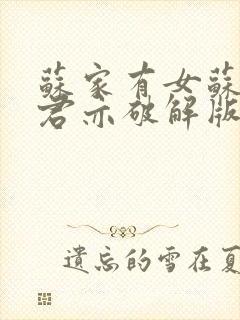 蘇家有女蘇
君亦破解版
遺忘的雪在夏